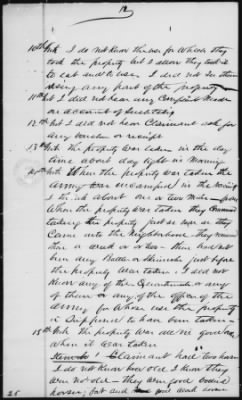 12
10th Int. I do not know the use for which they
took the property but I know they took it
to eat and to use. I did not see them
using any part of the property
11th Int I did not hear any Complaint made
on account of
12th Int I did not hear Claimant ask for
any voucher or receipt
13th Int The property was taken in the day
time about day light in morning
14th Int When the property was taken the
army was encamped in the
I think about one or two miles from
When the property was taken they Commenced
taking the property just as soon as they
Came into the Neighborhood They remained
then a week or so there had not
been any Battle or Skirmish just before
the property was taken. I did not
know any of the Quartermasters or any
of them or any of the officers of the
army for whose use the property
is Supposed to have been taken
15th Int. The property was all in good
when it was taken
Item No 1 Claimant had two horses
I do not know how old I know they
were not old they were good
horses, fat and good
25